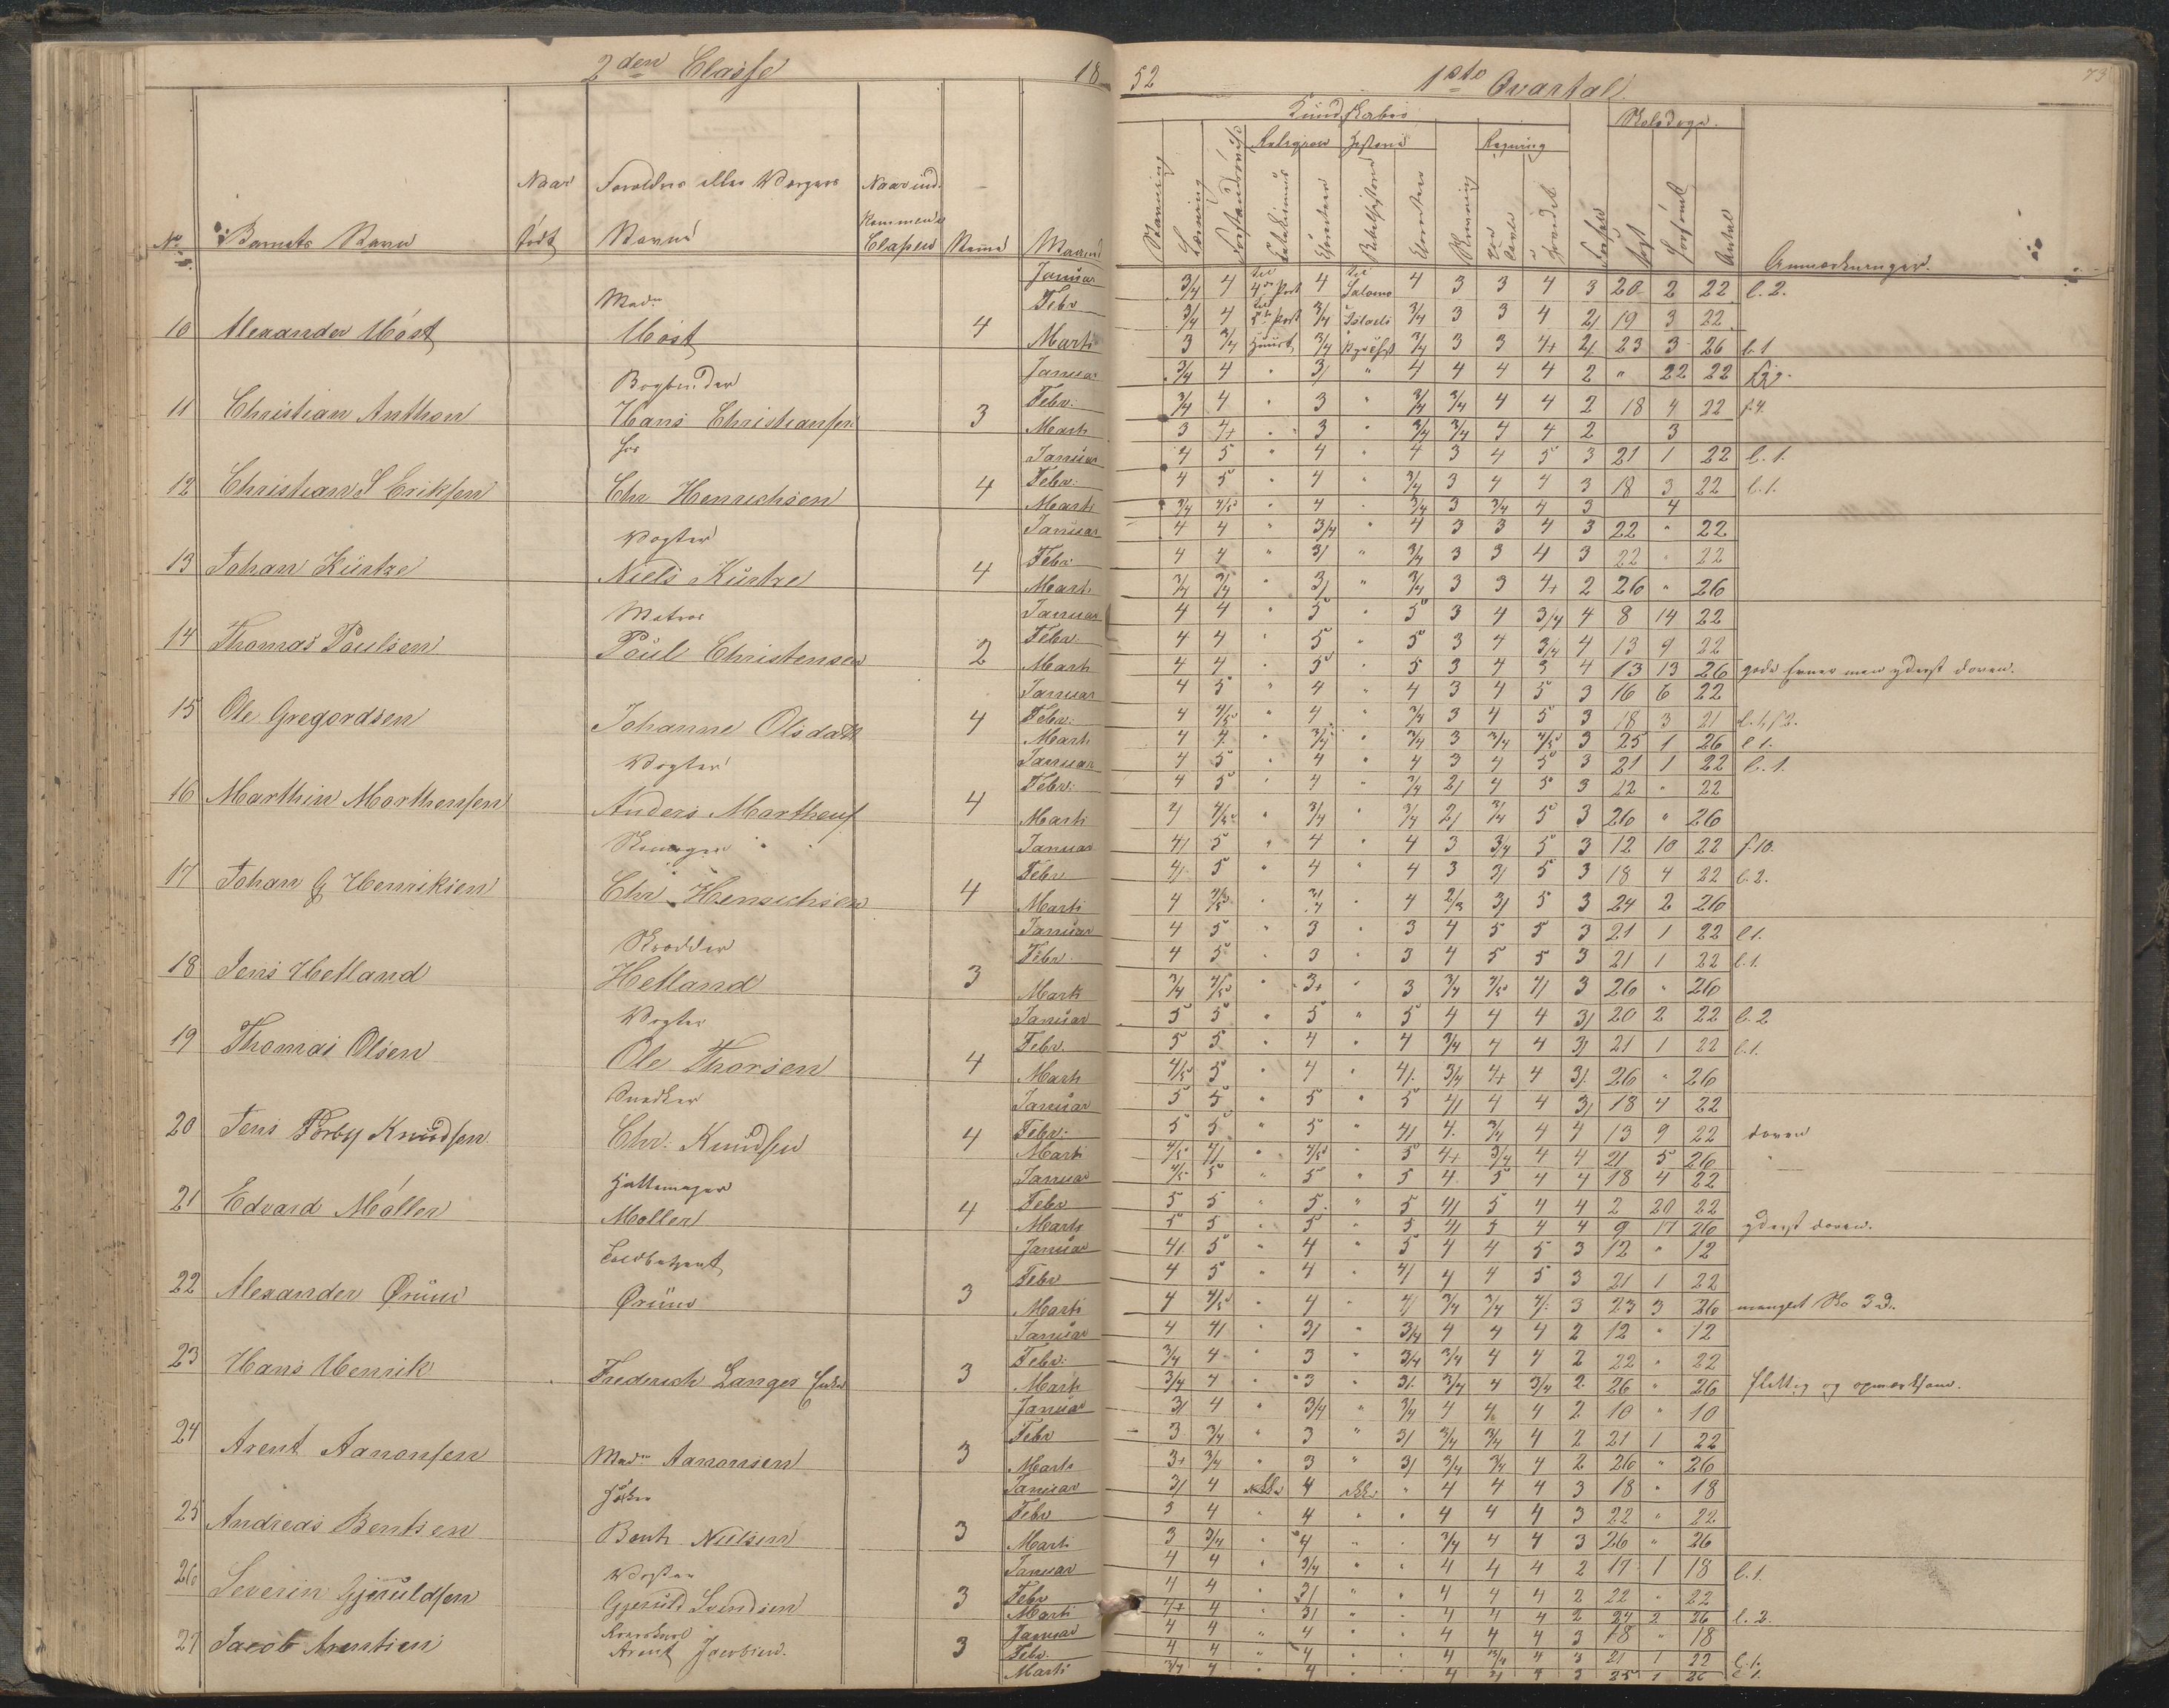 2den Classe 18
52 1ste Qvartal 73
Kundskaber
Religion Historie Regning
No Barnets Navn Naar født Forældres eller Værgers Navne Naar ind- kommen i Classen Evne Maaned
Stavning Læsning Forstandsøvelse Catechismus Bibelhistorie Skrivning Tavle Hovedet Antal Anmærkninger.
Januar 3/4 4 4de Part 4 Salomo 4 3 3 4 3 20 2 22 l. 2.
Madm
Febr 3/4 4 3/4 3/4 3 3 4 2/ 19 3 22
10 Alexander Móst Móst 4
Marti 3 3/4 3/4 3/4 3 3 4+ 2/ 23 3 26 l. 1
Januar 3/4 4 " 3/ " 4 4 4 4 2 " 22 22
Bogbinder
Febr: 3/4 4 " 3 " 3/4 3/4 4 4 2 18 4 22 f. 4.
11 Christian Anthon Hans Christiansen 3
Marti 3 4+ " 3 " 3/4 3/4 4 4 2 3
Januar 4 5 " 4 " 4 3 4 5 3 21 1 22 l. 1.
Febr: 4 5 " 4 " 3/4 3 4 4 3 18 3 22 l. 1.
12 Christian S Eriksen Chr Henrichsen 4
Marti 3/4 4/5 " 4 " 3/4 3 3/4 4 3 4
Januar 4 4 " 3/4 " 4 3 3 4 3 22 " 22
Vogter
Febr: 4 4 " 3/ " 3/4 3 3 4 3 22 " 22
13 Johan Küntze Niels Küntze 4
Marti 3/4 3/4 " 3/ " 3/4 3 3 4+ 2 26 " 26
Januar 4 4 " 5 " 5 3 4 3/4 4 8 14 22
Matros
Febr: 4 4 " 5 " 5 3 4 3/4 4 13 9 22
14 Thomas Poulsen Poul Christensen 2
Marti 4 4 " 5 " 5 3 4 3 4 13 13 26 gode Evner men yderst doven.
Januar 4 5 " 4 " 4 3 4 5 3 16 6 22
15 Ole Gregordsen Johanne Olsdatt 4
Febr: 4 4/5 " 4 " 3/4 3 4 5 3 18 3 21 l. 1, f 2.
Marti 4 4 " 3/4 " 3/4 3 3/4 4/5 3 25 1 26 l 1.
Januar 4 5 " 4 " 4 3 4 5 3 21 1 22 l. 1.
Vogter
Febr: 4 5 " 4 " 3/4 2/ 4 5 3 22 " 22
16 Marthin Marthensen Anders Marthens 4
Marti 4/ 4/5 " 3/4 " 3/4 2/ 3/4 5 3 26 " 26
Januar 4/ 5 " 4 " 4 3 3/4 5 3 12 10 22 f. 10.
Febr 4/ 5 " 4 " 4 3 3/ 5 3 18 4 22 l. 2.
17 Johan G Henriksen Chr. Henrichsen 4
Marti 4 4/5 " 3/4 " 4 2/3 3/ 5 3 24 2 26
Januar 4 5 " 3 " 3 4 5 5 3 21 1 22 l 1.
Skrædder
Febr 4 5 " 3 " 3 4 5 5 3 21 1 22 l. 1.
18 Jens Helland Helland 3
Marti 3/4 4/5 " 3+ " 3 3/4 4/5 4/ 3 26 " 26
Januar 5 5 " 5 " 5 4 4 4 3/ 20 2 22 l. 2
Vogter
Febr. 5 5 " 4 " 4 3/4 4 4 3/ 21 1 22 l. 1.
19 Thomas Olsen Ole Thorsen 4
Marti 4/5 5 " 4 " 4/ 3/4 4+ 4 3/ 26 " 26
Januar 5 5 " 5 " 5 4/ 4 4 3/ 18 4 22
Snedker
Febr: 5 5 " 5 " 4/ 4 3/4 4 4 13 9 22 doven
20 Jens Torby Knudsen Chr: Knudsen 4
Marti 4/5 4/ " 4/5 " 5 4+ 3/4 4 4 21 5 26 "
Januar 4/5 5 " 5 " 5 4 5 4 4 18 4 22
Hattemager
Febr 5 5 " 5 " 5 4/ 5 4 4 2 20 22
21 Edvard Móller Moller 4
Marti 5 5 " 5 " 5 4/ 5 4 4 9 17 26 yderst doven.
Januar 4/ 5 " 4 " 5 4 4 5 3 12 " 12
Toldbetjent
Febr 4 5 " 4 " 4/ 4 4 5 3 21 1 22
22 Alexander Ørüm Ørüm 3
Marti 4 4/5 " 4 " 4/ 3/4 3/4 4/ 3 23 3 26 manglet Sko 3 D.
Januar 4 4/ " 3/ " 3/4 4 4 4 2 12 " 12
Febr: 3/4 4 " 3 " 3/4 3/4 4 4 2 22 " 22
23 Hans Henrik Frederich Langes Enke 3
Marti 3/4 4 " 3 " 3/ 3/4 4 3/4 2 26 " 26 flittig og opmærksom.
Januar 3/ 4 " 3/4 " 3/4 4 4 4 2 10 " 10
Febr 3 3/4 " 3 " 3/ 3/4 3/4 4 2 21 1 22
24 Arent Aanonsen Madm Aanonsen 3
Marti 3+ 3/4 " 3 " 3/ 3/4 3/4 4 2 26 " 26
Januar 3/ 4 ikke 4 ikke " 4 4 4 3 18 " 18
Febr 3 4 " 4 " " 4 4 4 3 22 " 22
25 Andreas Bentsen Benth Nielsen 3
Marti 3 3/4 " 4 " " 3/4 4 4 3 26 " 26
Januar 4 4 " 3/4 " " 4 4 4 2 17 1 18 l. 1.
Febr 4 4 " 3/ " " 4 4 4 2 22 " 22
26 Severin Gjeruldsen Gjeruld Svendsen 3
Marti 4+ 4 " 3/ " " 4 4 4 2 24 2 26 l. 2.
Januar 4 4 " 4 " " 4 4 4 3 18 " 18
27 Jacob Arentsen Arent Jacobsen. 3
Febr. 4 4 " 4 " " 4 3/4 4 3 21 1 22 l. 1.
Marti 3/4 4 " 4 " " 4 3/ 4 3 25 1 26 l 1.